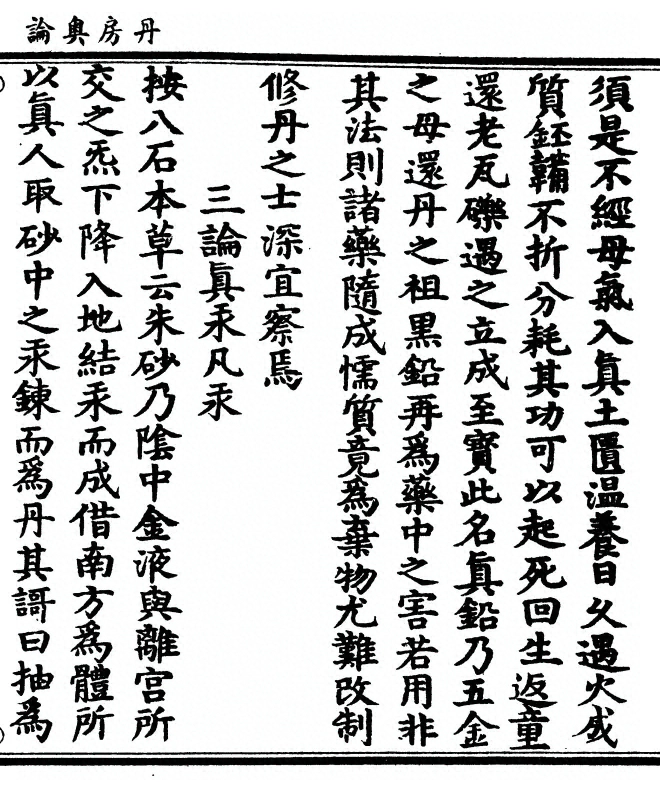 丹房奧論
須是不經母氣入眞土匱温養日久遇火成
質鉟鞴不折分耗其功可以起死回生返童
還老瓦礫遇之立成至寳此名眞鉛乃五金
之母還丹之祖黒鉛再爲藥中之害若用非
其法則諸藥隨成懦質竟爲棄物尤難改制
修丹之士深宜察焉
三論眞汞凡汞
按八石本草云朱砂乃陰中金液與離宮所
交之炁下降入地結汞而成借南方爲體所
以眞人取砂中之汞鍊而爲丹其謌曰抽爲